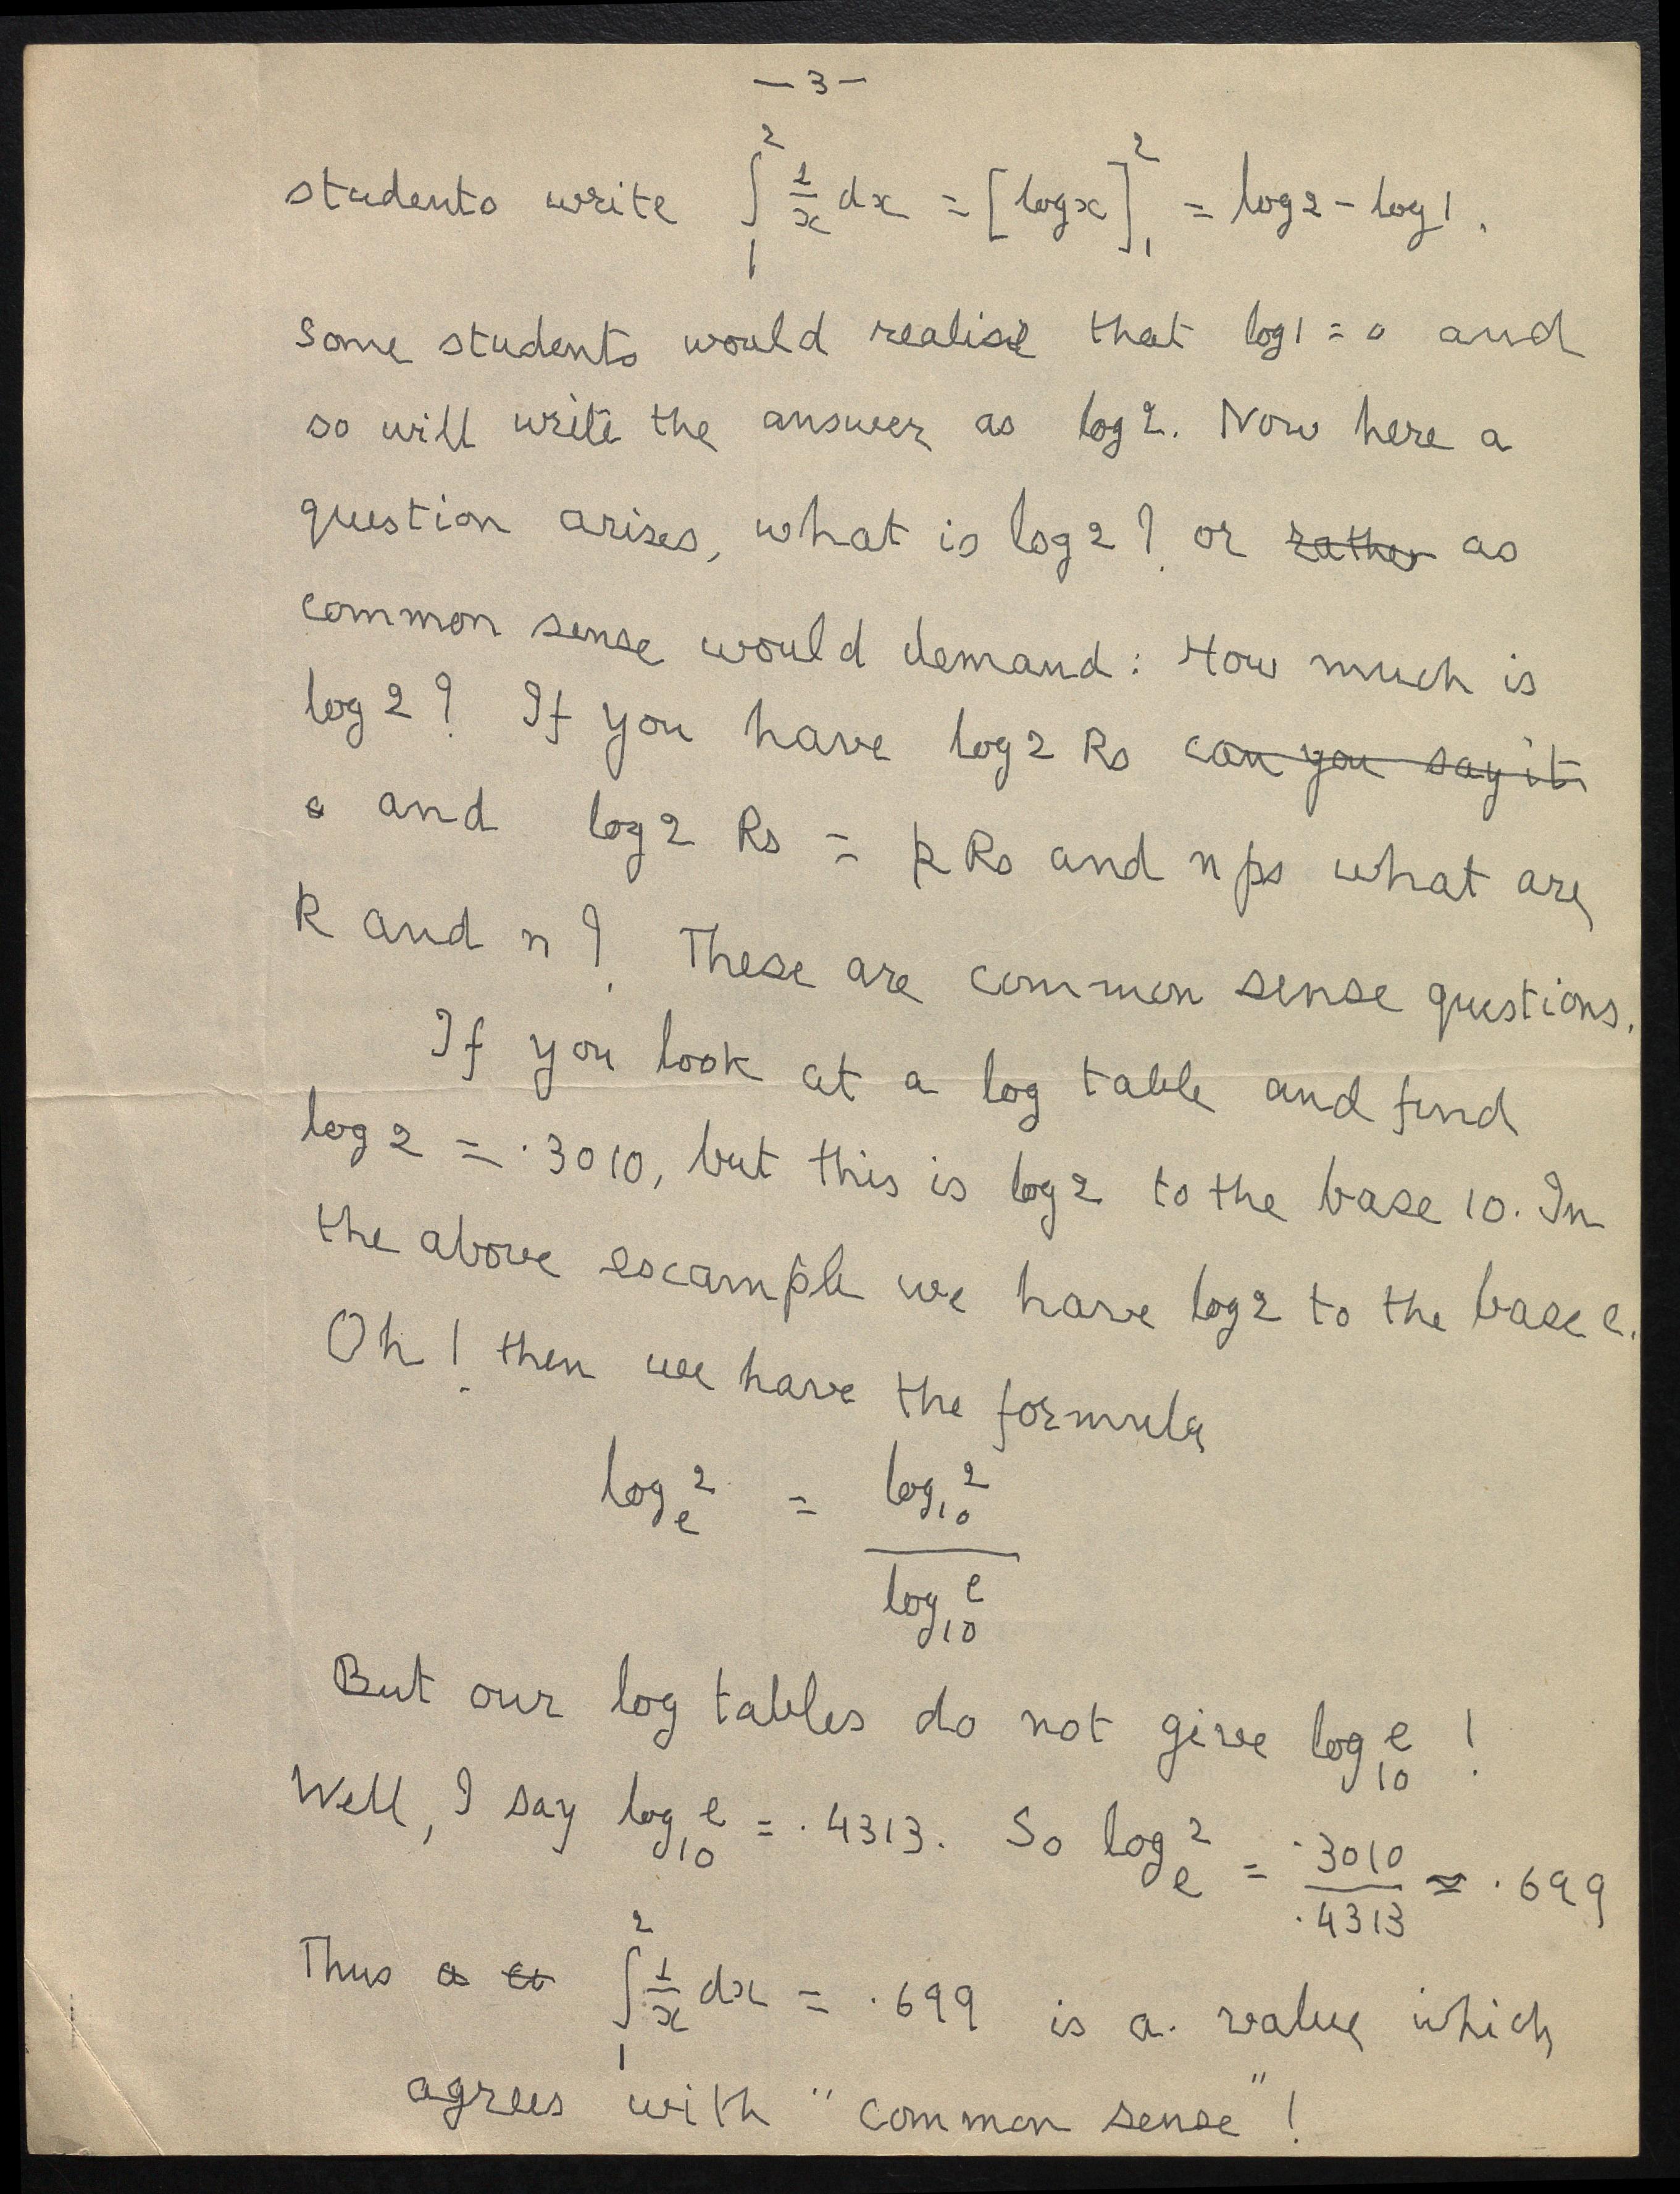 — 3 —
students write ∫₁² 1/x dx = [log x]₁² = log 2 - log 1.
Some students would realise that log 1 = 0 and
so will write the answer as log 2. Now here a
question arises, what is log 2? or rather as
common sense would demand: How much is
log 2? If you have log 2 Rs can you say it
and log 2 Rs = k Rs and n ps what are
k and n? These are common sense questions.
If you look at a log table and find
log 2 = .3010, but this is log 2 to the base 10. In
the above example we have log 2 to the base e.
Oh! then we have the formula
logₑ 2 = log₁₀ 2 / log₁₀ e
But our log tables do not give log₁₀ e !
Well, I say log₁₀ e = .4313. So logₑ 2 = .3010/.4313 ≈ .699
Thus ∫₁² 1/x dx = .699 is a value which
agrees with "common sense"!